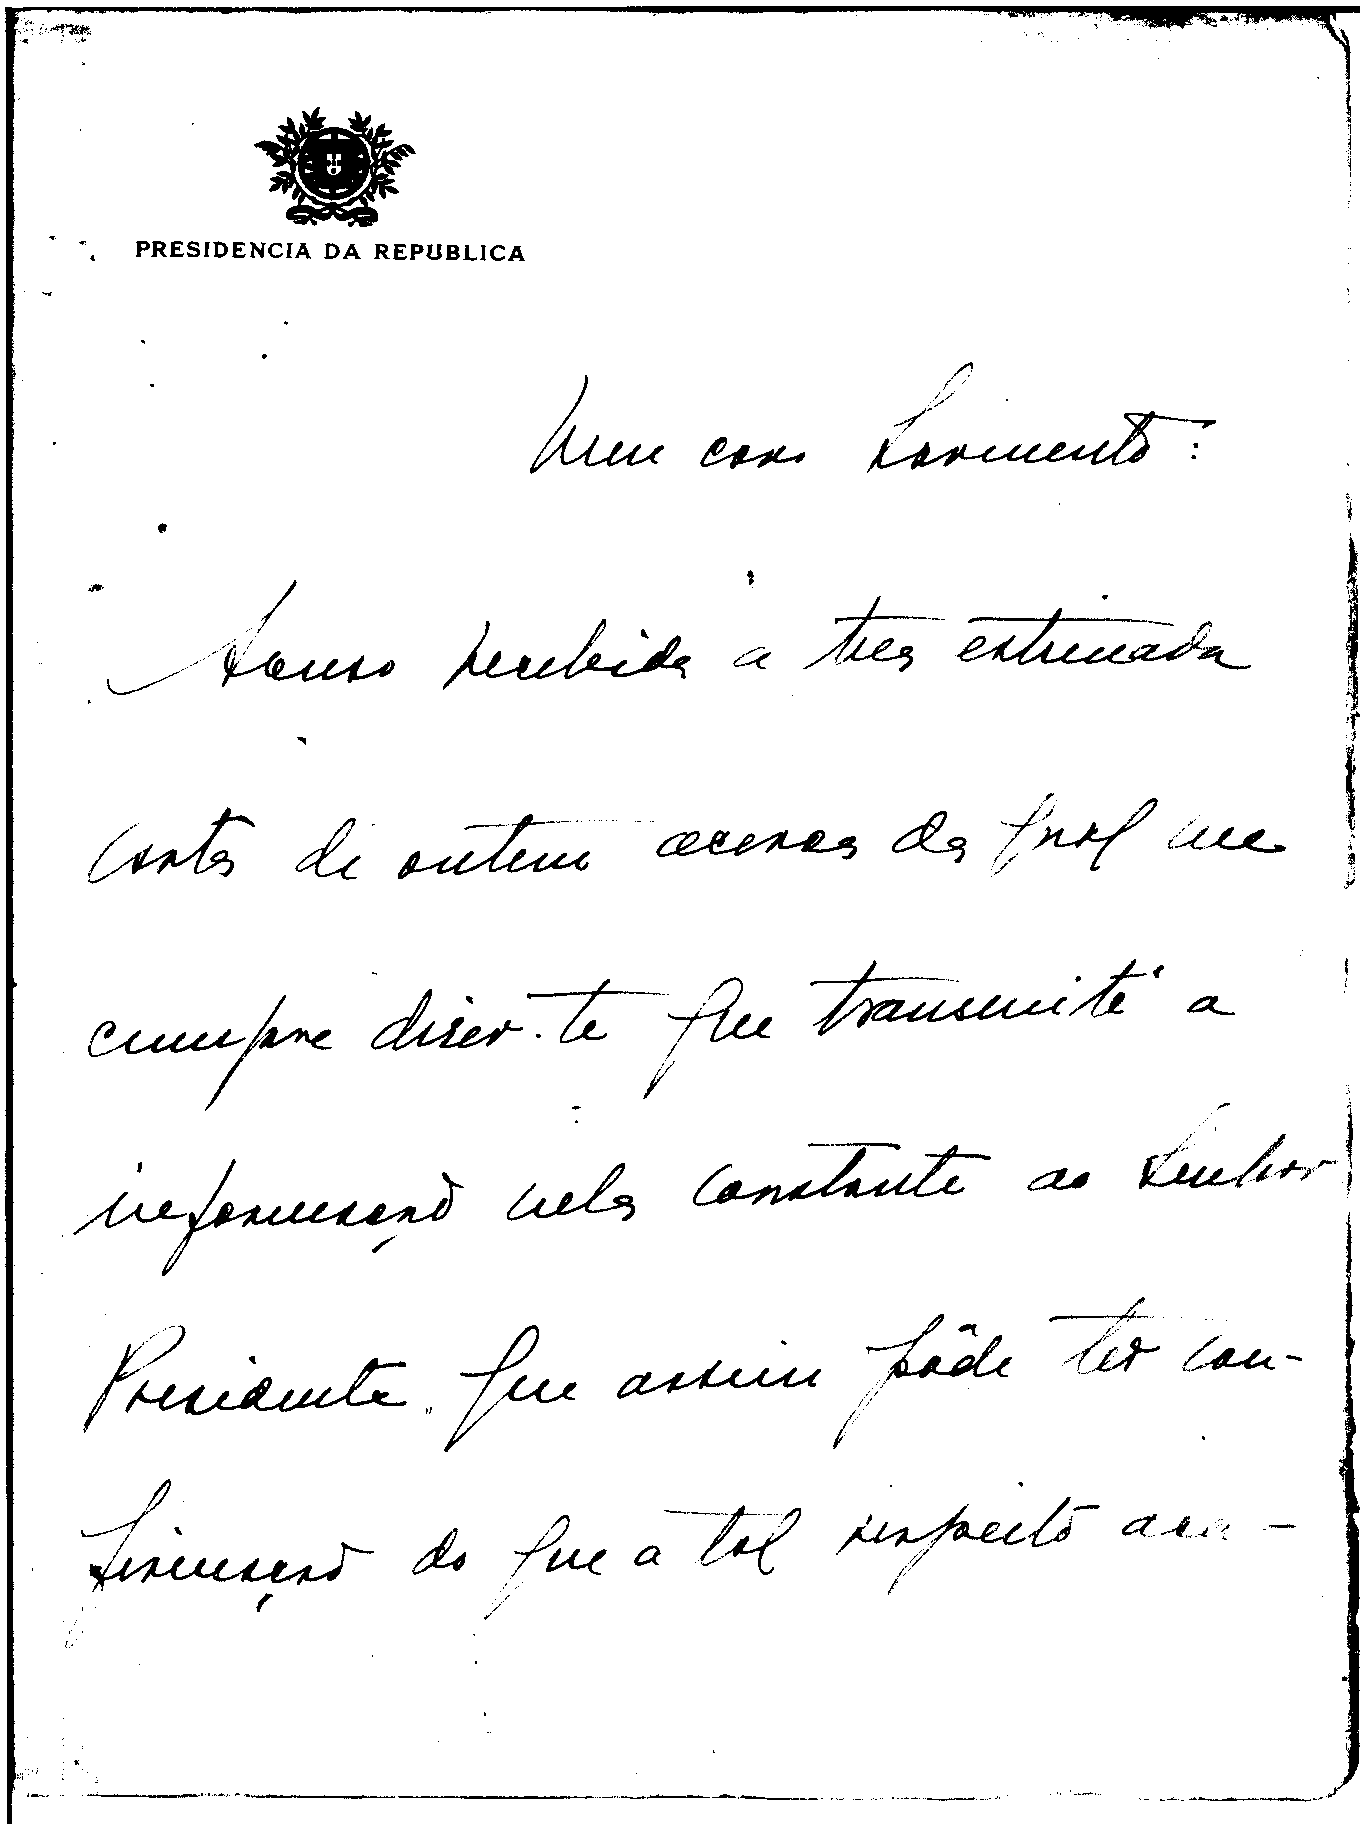 PRESIDENCIA DA REPUBLICA
Meu caro Sarmento:
Acuso recebida a tua estimada
carta de ontem acerca da qual me
cumpre dizer-te que transmiti a
informação nela constante ao Senhor
Presidente que assim pôde ter con-
firmação do que a tal respeito aca-